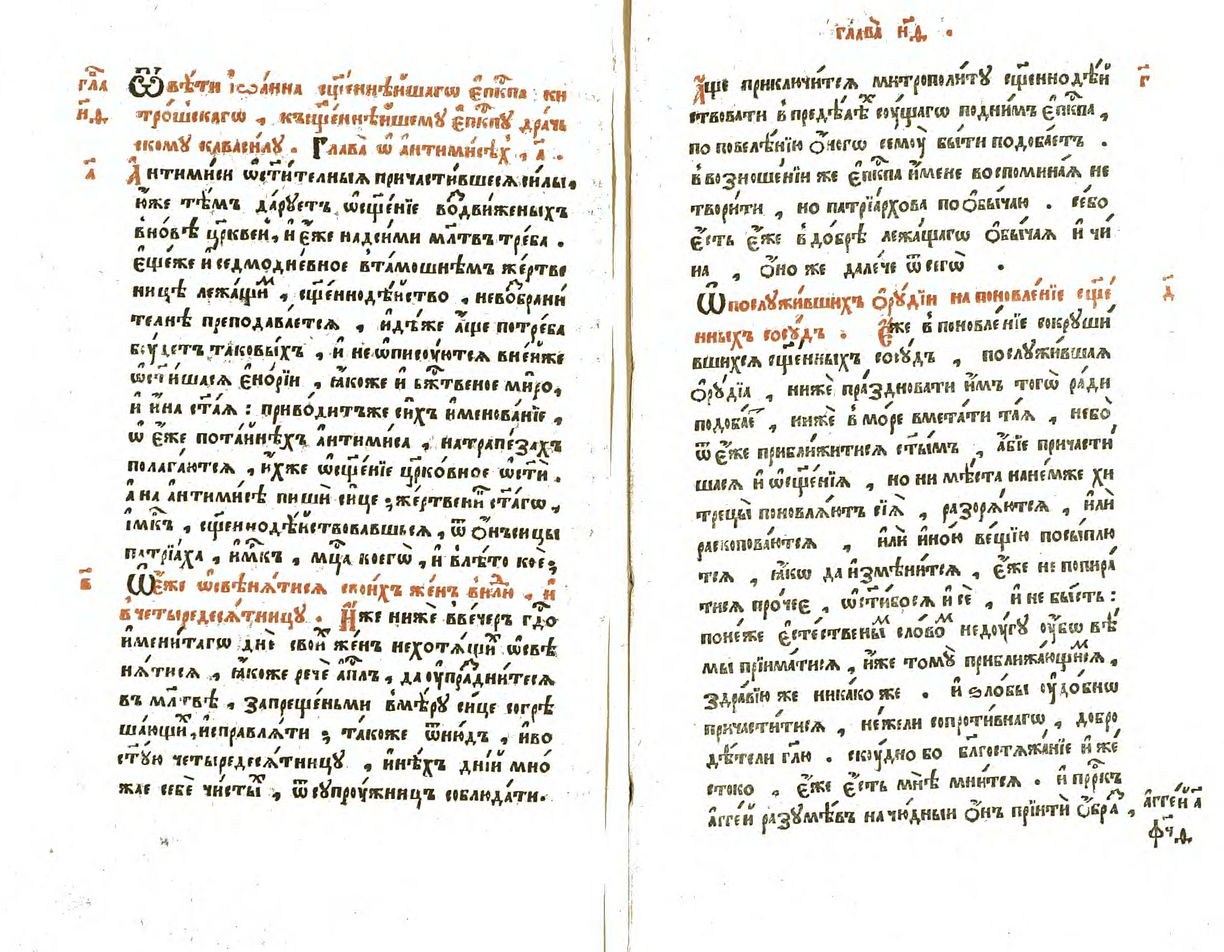 гла҃ н҃д
Ѿвѣти їѡа́нна сщ҃еннѣ́йшагѡ є҆пкⷭ҇па ки
тро́шскагѡ , къ сщ҃еннѣ́йшему є҆пкⷭ҇пу драчь
скому кавасилу . Глава̀ ѡ҆ а҆нтими́сѣх , а҃ .
а҃
А҆нтими́си ѡ҆ст҃и́телныѧ причасти́вшесѧ си́лы ,
ю҆́же тѣ́мъ да́руетъ ѡ҆сщ҃е́нїе во́движеныхъ
вно́вѣ цр҃квей , и҆ є҆́же над си́ми мл҃твъ тре́ба .
є҆ще́же и҆ седмодне́вное в та́мошнѣмъ же́ртве
ницѣ лежа́щиⷨ , сщ҃еннодѣ́йство , невобра́ни
телнѣ преподава́етсѧ , и҆дѣ́же а҆́ще потре́ба
бу́детъ таковы́хъ , и҆ не ѡ҆писоу́ютсѧ вне́йже
ѡ҆ст҃и́шасѧ є҆но́рїи , ꙗ҆́коже и҆ бж҃твеное ми́ро ,
и҆ и҆́на ст҃а́ѧ : приво́дитъже си́хъ и҆менова́нїе ,
ѡ҆ є҆́же пота́йнѣхъ а҆нтими́са , на трапе́захъ
полага́ютсѧ , и҆́хже ѡ҆сщ҃е́нїе цр҃ко́вное ѡ҆ст҃и .
а҆ на а҆нтими́сѣ пишѝ си́це ; же́ртвеник ст҃а́гѡ ,
і҆м҃къ , сщ҃еннодѣ́йствовавшьсѧ , ѿ ѻ҆нъсицы
патрїа́ха , и҆м҃къ , мц҃а коегѡ̀ , и҆ влѣ́то коѐ ;
в҃
Ѿ є҆́же ѿсвѣнѧ́тисѧ свои́хъ же́нъ в нлⷣю , и҆
в четыредесѧ́тницу . И҆́же нижѐ в ве́черъ гдⷭ҇о
и҆мени́тагѡ днѐ свои́ⷯ же́нъ нехотѧ́щиⷯ ѿсвѣ
нѧ́тисѧ , ꙗ҆́коже речѐ а҆пл҃ъ , да оу҆пра́днитесѧ
въ мл҃твѣ , запреще́ньми в мѣ́ру си́це согрѣ
ша́ющиⷯ , и҆справлѧ́ти ; та́коже ѿню́дъ , и҆ во
ст҃у́ю четыредесѧ́тницу , и҆ и҆нѣ́хъ дні́й мно́
жае себѐ чи́сты , ѿ супроу́жницъ соблюда́ти .
глава̀ н҃д .
г҃
А҆́ще приключи́тсѧ митрополи́ту сщ҃еннодѣ́й
ствовати в предѣ́лѣⷯ соу́щагѡ под ни́мъ є҆пкⷭ҇па ,
по повелѣ́нїю ѻ҆́негѡ семоу̀ бы́ти подоба́етъ .
в возноше́нїи же є҆пкⷭ҇па и҆́мене воспомина́ѧ не
твори́ти , но патрїа́рхова по ѻ҆бы́чаю . се́бо
є҆́сть є҆́же в до́брѣ лежа́щагѡ ѻ҆бы́чаѧ и҆ чи́
на , ѻ҆́но же дале́че ѿ сегѡ̀ .
д҃
Ѿ послужи́вшихъ ѻ҆ру́дїи на поновле́нїе сщ҃е́
нныхъ сосу́дъ . Є҆́же в поновле́нїе сокруши́
вшихсѧ сщ҃е́нныхъ сосу́дъ , послужи́вшаѧ
ѻ҆ру́дїа , нижѐ пра́здновати и҆̀мъ тогѡ̀ ра́ди
подоба́еⷮ , нижѐ в мо́ре вмета́ти та́ѧ , не́бо
ѿ є҆́же прибли́житисѧ ст҃ы́мъ , а҆́бїе причасти́
шасѧ и҆ ѡ҆сщ҃е́нїѧ , но ни мѣ́ста на не́мже хи́
трецы̀ поновлѧ́ютъ сїѧ̀ , разорѧ́ютсѧ , и҆лѝ
раскопова́ютсѧ , и҆лѝ и҆но́ю ве́щїю посы́плю
тсѧ , ꙗ҆́кѡ да и҆змѣ́нитсѧ , є҆́же не попира́
тисѧ про́чее , ѡ҆ст҃и́босѧ и҆ сѐ , и҆ не бы́сть :
поне́же є҆сте́ственыⷨ сло́воⷨ неду́гу оу҆́бѡ вѣ́
мы прїима́тисѧ , и҆́же томꙋ̀ приближа́ющимсѧ ,
здра́вїю же ника́коже . и҆ ѕло́бы оу҆до́бнѡ
причасти́тисѧ , не́жели сопроти́внагѡ , добро
дѣ́тели гл҃ю . ску́дно бо бл҃госта́жа́нїе и҆ же́
стоко , є҆́же є҆́сть мнѣ̀ мни́тсѧ . и҆ прⷪ҇ркъ
а҆гге́й разумѣ́въ на чю́дныи ѻ҆́нъ прїитѝ ѻ҆́браⷥ ,
а҆гге́й а҃
фч҃д